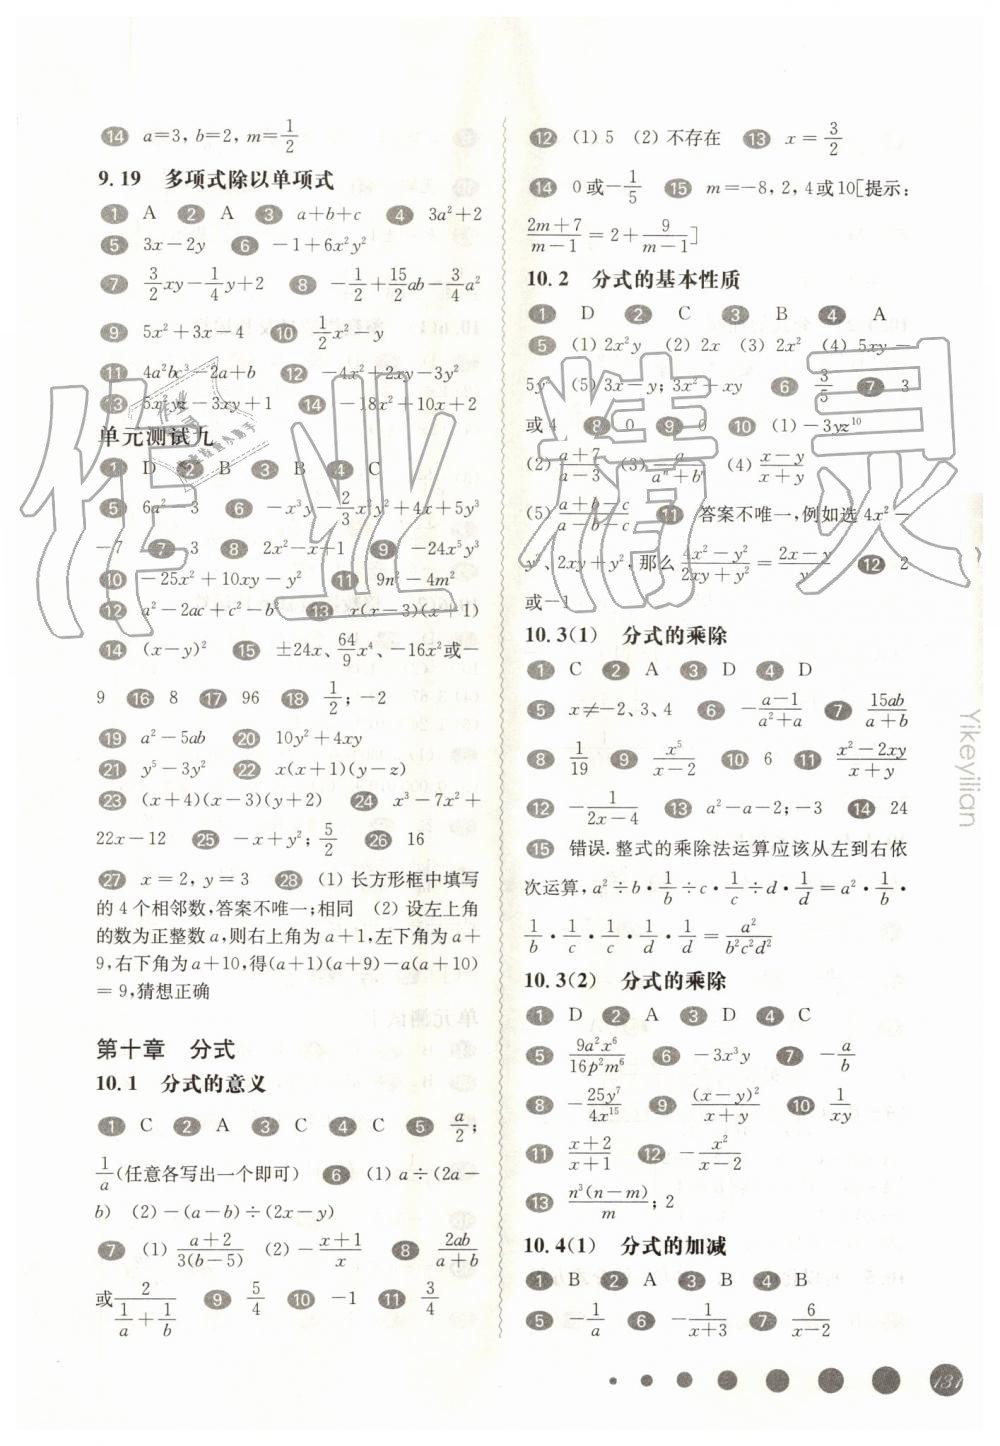 ⑭ a=3, b=2, m=1/2
9.19 多项式除以单项式
① A ② A ③ a+b+c ④ 3a²+2
⑤ 3x-2y ⑥ -1+6x²y²
⑦ 3/2xy-1/4y+2 ⑧ -1/2+15/2ab-3/4a²
⑨ 5x²+3x-4 ⑩ 1/2x²-y
⑪ 4a²bc³-2a+b ⑫ -4x²+2xy-3y²
⑬ 5x²yz-3xy+1 ⑭ -18x²+10x+2
单元测试九
① D ② B ③ B ④ C
⑤ 6a²-3 ⑥ -x³y-2/3x²y²+4x+5y³
-7 ⑦ 3 ⑧ 2x²-x+1 ⑨ -24x⁵y³
⑩ -25x²+10xy-y² ⑪ 9n²-4m²
⑫ a²-2ac+c²-b² ⑬ r(r-3)(x+1)
⑭ (x-y)² ⑮ ±24x、64/9x⁴、-16x²或-
9 ⑯ 8 ⑰ 96 ⑱ 1/2; -2
⑲ a²-5ab ⑳ 10y²+4xy
㉑ y⁵-3y² ㉒ x(x+1)(y-z)
㉓ (x+4)(x-3)(y+2) ㉔ x³-7x²+
22x-12 ㉕ -x+y²; 5/2 ㉖ 16
㉗ x=2, y=3 ㉘ (1) 长方形框中填写
的4个相邻数,答案不唯一;相同 (2) 设左上角
的数为正整数a,则右上角为a+1,左下角为a+
9,右下角为a+10,得(a+1)(a+9)-a(a+10)
=9,猜想正确
第十章 分式
10.1 分式的意义
① C ② A ③ C ④ C ⑤ a/2;
1/a(任意各写出一个即可) ⑥ (1) a÷(2a-
b) (2)-(a-b)÷(2x-y)
⑦ (1) (a+2)/(3(b-5)) (2)-(x+1)/x ⑧ 2ab/(a+b)
或2/(1/a+1/b) ⑨ 5/4 ⑩ -1 ⑪ 3/4
⑫ (1) 5 (2) 不存在 ⑬ x=3/2
⑭ 0或-1/5 ⑮ m=-8, 2, 4或10[提示:
(2m+7)/(m-1)=2+9/(m-1)]
10.2 分式的基本性质
① D ② C ③ B ④ A
⑤ (1) 2x²y (2) 2x (3) 2x² (4) 5xy-
5y² (5) 3x-y; 3x²+xy ⑥ 3/5 ⑦ 3
或4 ⑧ 0 ⑨ 0 ⑩ (1)-3yz¹⁰
(2) (a+7)/(a-3) (3) a/(aⁿ+b) (4) (x-y)/(x+y)
(5) (a+b-c)/(a-b-c) ⑪ 答案不唯一,例如选4x²-
y²、2xy+y².那么(4x²-y²)/(2xy+y²)=(2x-y)/y ⑫ 2
或-1
10.3(1) 分式的乘除
① C ② A ③ D ④ D
⑤ x≠-2、3、4 ⑥ -(a-1)/(a²+a) ⑦ 15ab/(a+b)
⑧ 1/19 ⑨ x⁵/(x-2) ⑩ 6 ⑪ (x²-2xy)/(x+y)
⑫ -1/(2x-4) ⑬ a²-a-2; -3 ⑭ 24
⑮ 错误.整式的乘除法运算应该从左到右依
次运算, a²÷b·1/b÷c·1/c÷d·1/d=a²·1/b·
1/b·1/c·1/c·1/d·1/d=a²/(b²c²d²)
10.3(2) 分式的乘除
① D ② A ③ D ④ C
⑤ 9a²x⁶/(16p²m⁶) ⑥ -3x³y ⑦ -a/b
⑧ -25y⁷/(4x¹⁵) ⑨ (x-y)²/(x+y) ⑩ 1/(xy)
⑪ (x+2)/(x+1) ⑫ -x²/(x-2)
⑬ n³(n-m)/m; 2
10.4(1) 分式的加减
① B ② A ③ B ④ B
⑤ -1/a ⑥ -1/(x+3) ⑦ 6/(x-2)
Yikeyilian
131
作业精灵